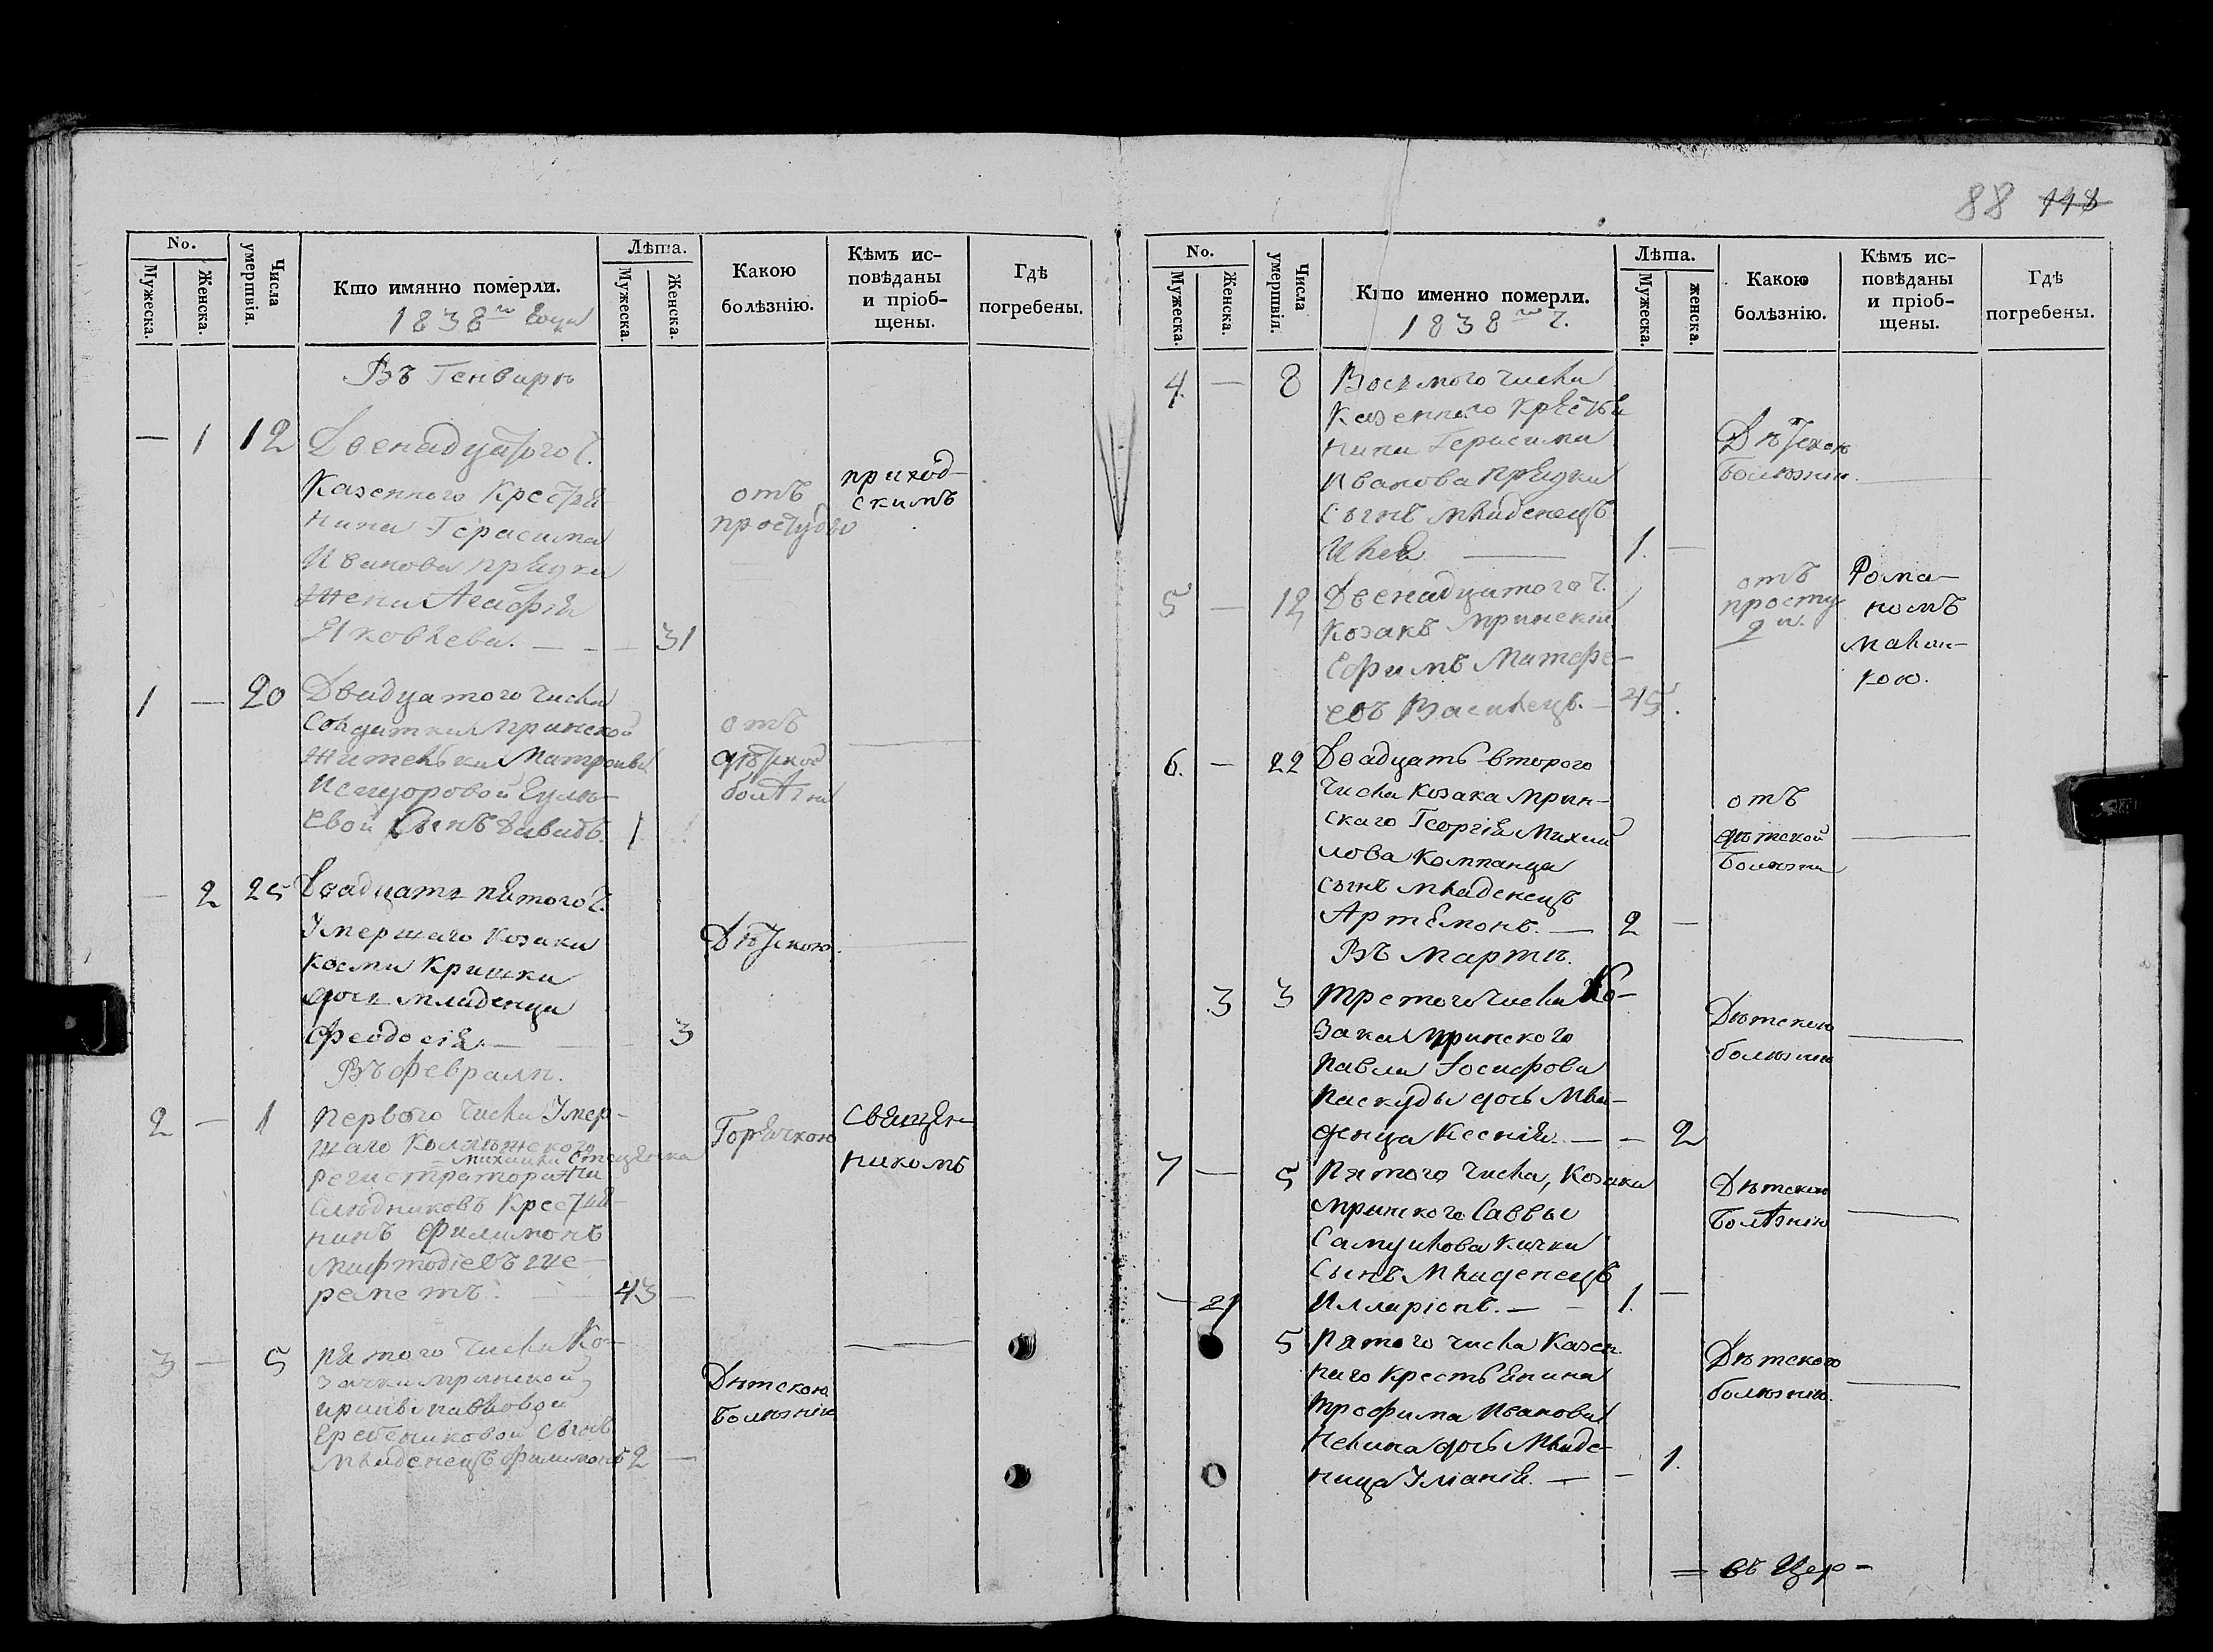 88 118
No.
Мужеска.
Женска.
Числа умертвія.
Кто имянно померли.
1838го года
Лѣта.
Мужеска.
Женска.
Какою болѣзнію.
Кѣмъ ис-
повѣданы
и пріоб-
щены.
Гдѣ погребены.
Въ Генварѣ
— 1 12 Двенадцатого ч.
Казенного Крестья
нина Герасима
Иванова
Жена Агафія
Яковлева. — — — 31
отъ
простуды
приход-
скимъ
1 — 20 Двадцатого числа
Солдатки Мринской
Жительки Матроны
Исидоровой
евой Сынъ Давидъ. 1
отъ
дѣтской
болѣзни
— 2 25 Двадцать пятого ч.
Умершаго Козака
Косми Кришки
дочь младенца
Феодосія. — — 3
Дѣтскою.
Въ феврале.
2 — 1 Первого числа Умер-
шаго Коллежского
регистратора
Михаила Стаценка
Слѣдниковъ Крестья
нинъ Филимонъ
Мифтодіевъ Ше-
реметъ. — 43 —
Горячкою
Священ-
никомъ
3 — 5 Пятого числа Ко-
зачки Мринской
Ирины Павловой
сынъ
Младенецъ Филимонъ 2 —
Дѣтскою
болѣзнію
No.
Мужеска.
Женска.
Числа умертвія.
Кто именно померли.
1838го г.
Лѣта.
Мужеска.
женска.
Какою болѣзнію.
Кѣмъ ис-
повѣданы
и пріоб-
щены.
Гдѣ погребены.
4. — 8 Восьмого числа
Казенного Крестья
нина Герасима
Иванова
Сынъ младенецъ
Илья — 1. —
Дѣтскою
болѣзнію.
5 — 12 Двенадцатого ч.
Козакъ Мринскій
Ефимъ Матфе-
евъ Василецъ. — 45.
отъ
просту
ды.
Рома-
номъ
Малин-
кою.
6. — 22 Двадцать второго
числа Козака Мрин-
скаго Георгія Михай
лова Компанца
сынъ младенецъ
Артемонъ. — 2 —
отъ
дѣтской
болѣзни
Въ Марте.
3 3 Третого числа Ко-
зака Мринского
Павла Іосифова
Паскуды дочь Мла-
денца Ксенія — — 2
Дѣтскою
болѣзнію
7 — 5 Пятого числа, Козака
Мринского Саввы
Самуилова Кички
Сынъ Младенецъ
Илларіонъ. — — 1. —
Дѣтскою
Болѣзнію
5 Пятого числа Казен
наго Крестьянина
Трофима Иванова
дочь Младе-
ница Уліанія. — — 1.
Дѣтского
болѣзнію.
= въ Цер =